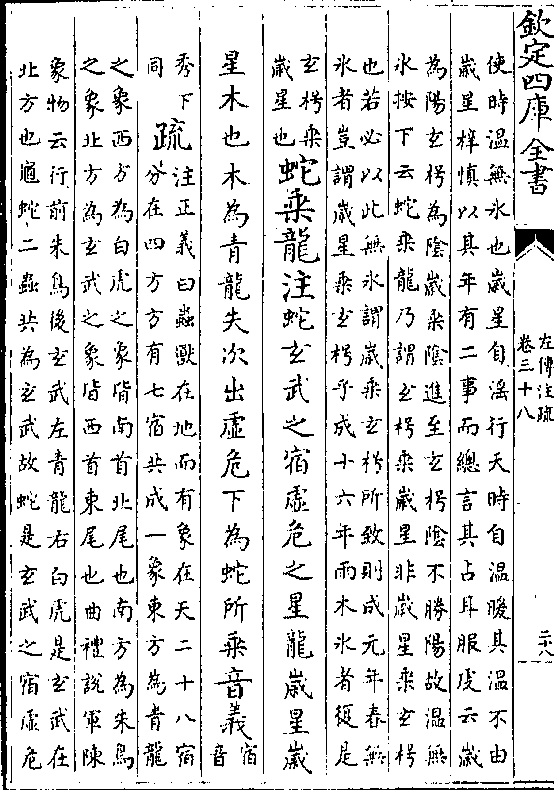 欽定四庫全書
左傳注疏
卷三十八
二十八
使時溫無氷也歲星自滛行天時自溫暖其溫不由
歲星梓慎以其年有二事而緫言其占耳服虔云歲
為陽玄枵為陰歲乘陰進至玄枵陰不勝陽故溫無
氷按下云蛇乘龍乃謂玄枵乘歲星非歲星乘玄枵
也若必以此無氷謂歲乘玄枵所致則成元年春無
氷者豈謂歲星乘玄枵乎成十六年雨木氷者復是
玄枵乘
歲星也
蛇乘龍注蛇玄武之宿虛危之星龍歲星歲
星木也木為青龍失次出虛危下為蛇所乘音義宿
音
秀下
同
疏注正義曰蟲獸在地而有象在天二十八宿
分在四方方有七宿共成一象東方為青龍
之象西方為白虎之象皆南首北尾也南方為朱鳥
之象北方為玄武之象皆西首東尾也曲禮說軍陳
象物云行前朱鳥後玄武左青龍右白虎是玄武在
北方也龜蛇二蟲共為玄武故蛇是玄武之宿虛危